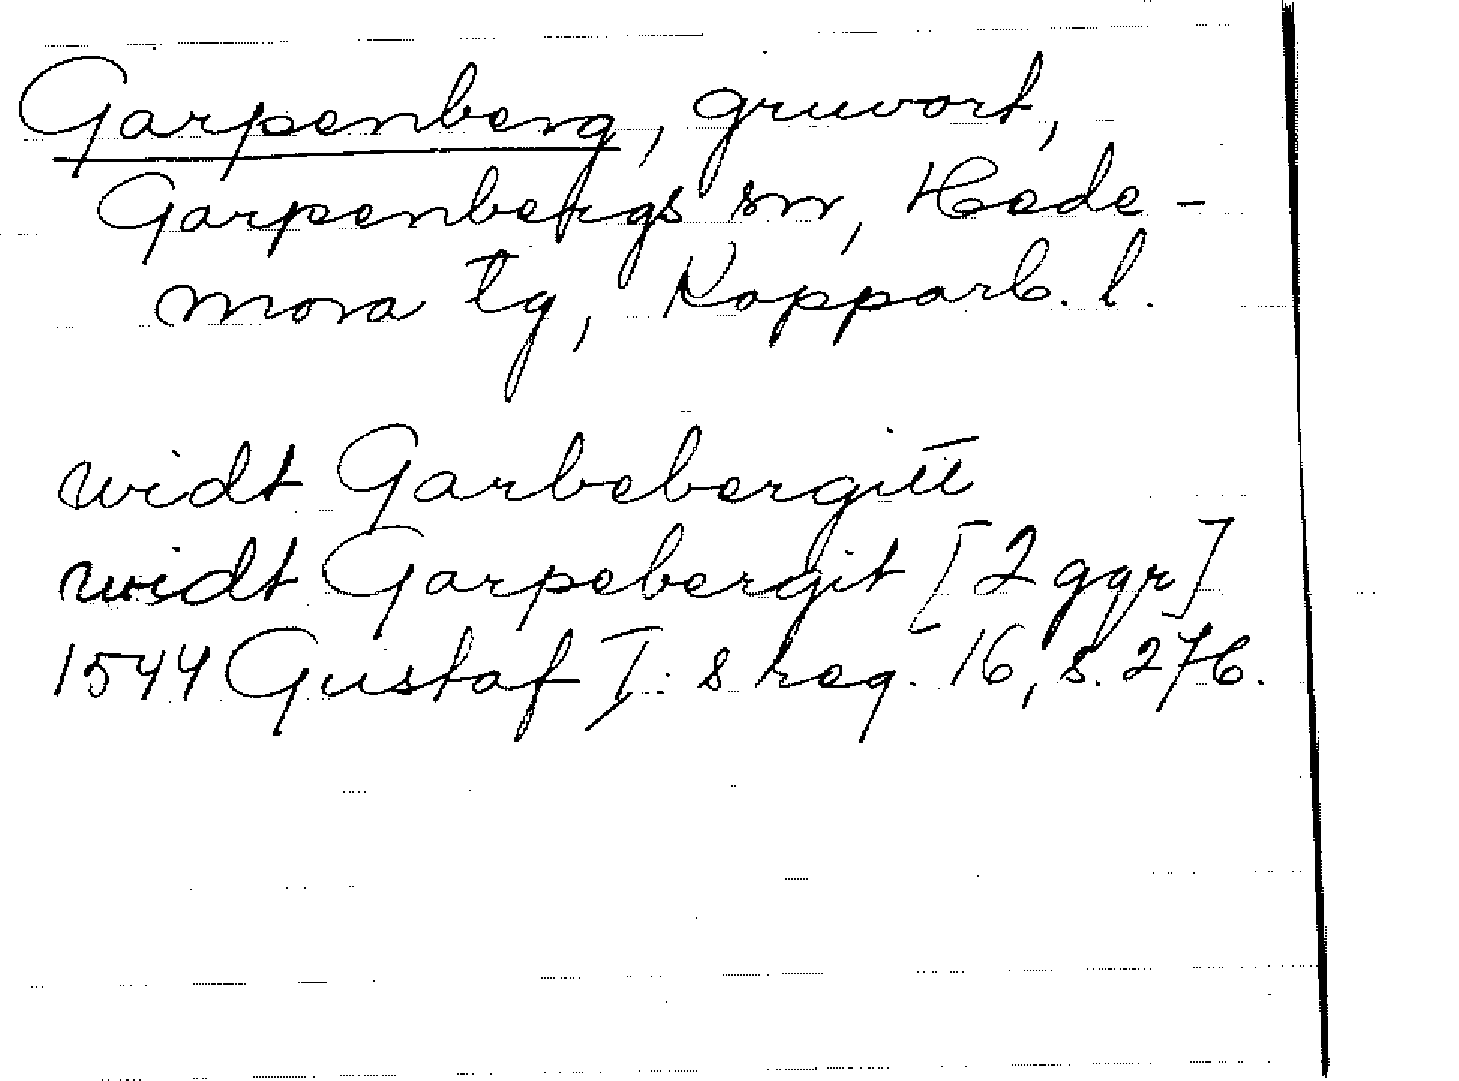 Garpenberg, gruvort,
Garpenbergs sn, Hede-
mora tg, Kopparb. l.
widt Garbebergitt
widt Garpebergit [2 ggr]
1544 Gustaf I:s reg. 16, s. 276.